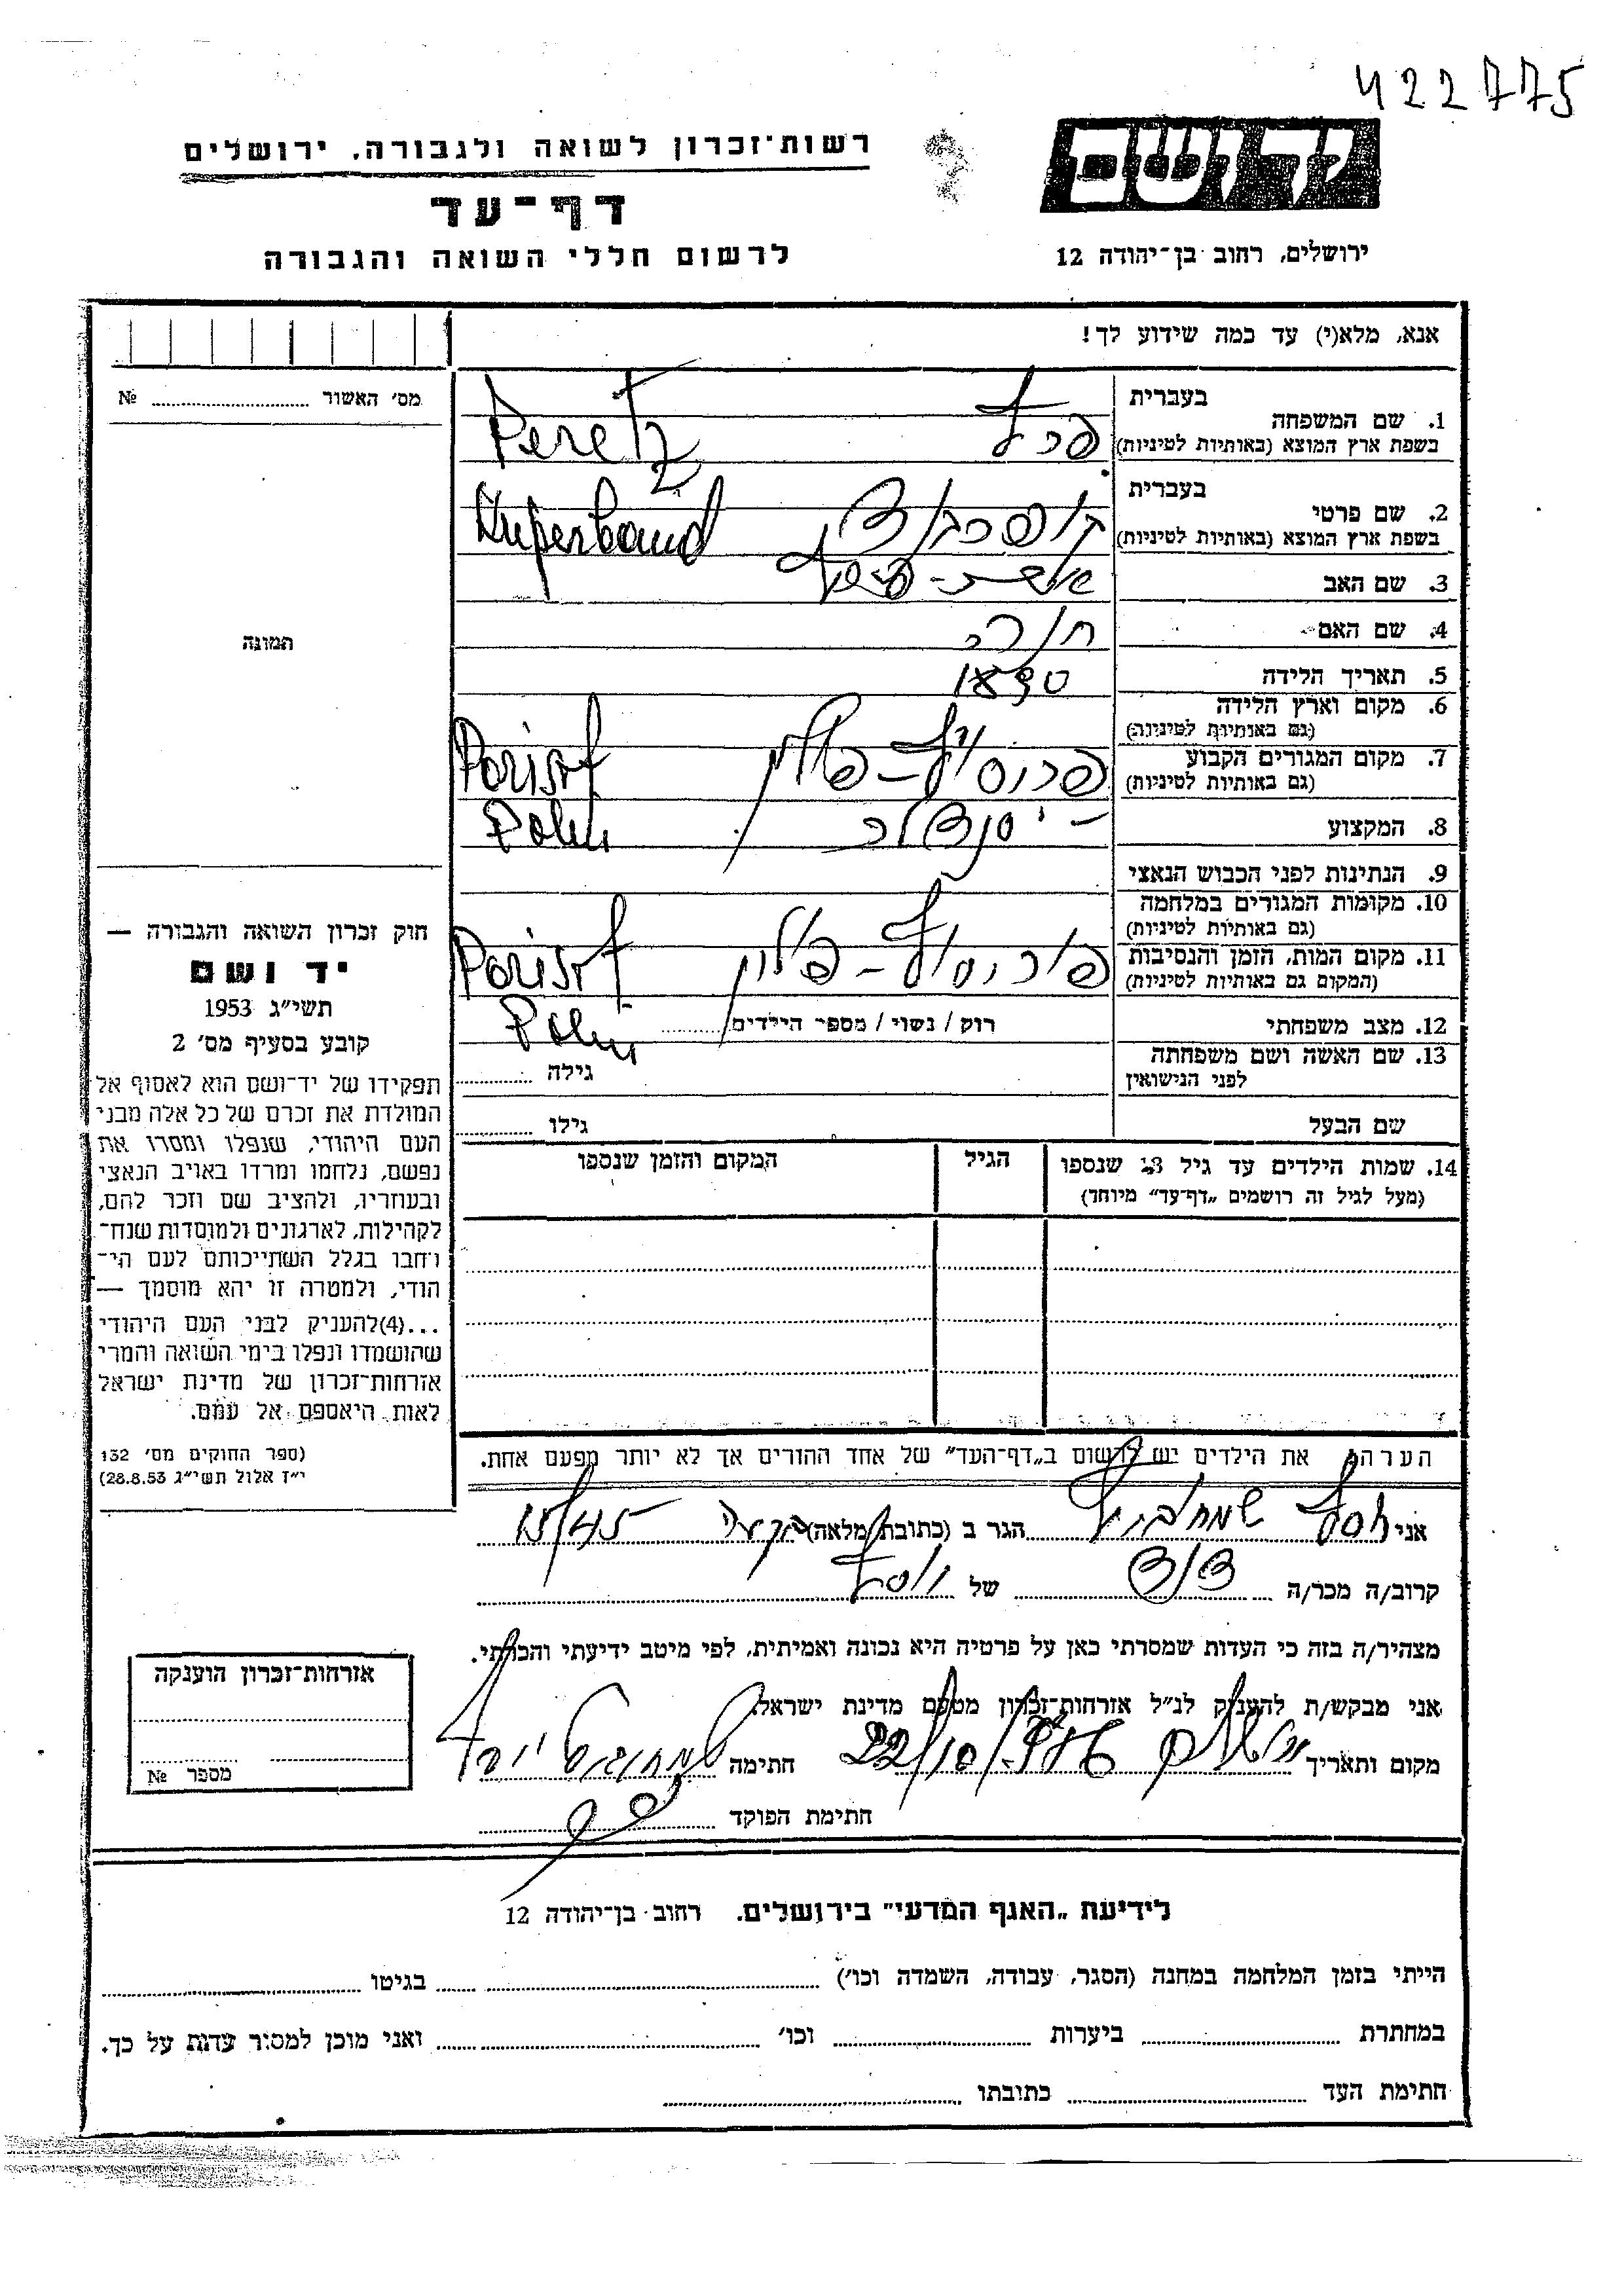 422775
רשות־זכרון לשואה ולגבורה, ירושלים
יד ושם
דף־עד
לרשום חללי השואה והגבורה
ירושלים, רחוב בן־יהודה 12
אנא, מלא(י) עד כמה שידוע לך!
מס׳ האשור №
תמונה
בעברית
1. שם המשפחה
בשפת ארץ המוצא (באותיות לטיניות)
פרץ
Peretz
בעברית
2. שם פרטי
בשפת ארץ המוצא (באותיות לטיניות)
קופרבנד
Kuperband
3. שם האב
4. שם האם
5. תאריך הלידה
1890
6. מקום וארץ הלידה
(גם באותיות לטיניות)
7. מקום המגורים הקבוע
(גם באותיות לטיניות)
Porisof
8. המקצוע
9. הנתינות לפני הכבוש הנאצי
10. מקומות המגורים במלחמה
(גם באותיות לטיניות)
11. מקום המות, הזמן והנסיבות
(המקום גם באותיות לטיניות)
פוריסוף - פולין
Porisof
12. מצב משפחתי
רוק / נשוי / מספר הילדים
13. שם האשה ושם משפחתה
לפני הנישואין
גילה
שם הבעל
גילו
14. שמות הילדים עד גיל 18 שנספו
(מעל לגיל זה רושמים „דף־עד״ מיוחד)
הגיל
המקום והזמן שנספו
חוק זכרון השואה והגבורה —
יד ושם
תשי״ג 1953
קובע בסעיף מס׳ 2
תפקידו של יד־ושם הוא לאסוף אל
המולדת את זכרם של כל אלה מבני
העם היהודי, שנפלו ומסרו את
נפשם, נלחמו ומרדו באויב הנאצי
ובעוזריו, ולהציב שם וזכר להם,
לקהילות, לארגונים ולמוסדות שנח־
רחבו בגלל השתייכותם לעם הי־
הודי, ולמטרה זו יהא מוסמך —
...(4)להעניק לבני העם היהודי
שהושמדו ונפלו בימי השואה והמרי
אזרחות־זכרון של מדינת ישראל
לאות היאספם אל עמם.
(ספר החוקים מס׳ 132
י״ז אלול תשי״ג 28.8.53)
הערה, את הילדים יש לרשום ב„דף־העד״ של אחד ההורים אך לא יותר מפעם אחת.
אני הגר ב (כתובת מלאה) 15/45
קרוב/ה מכר/ה דוד של
מצהיר/ה בזה כי העדות שמסרתי כאן על פרטיה היא נכונה ואמיתית, לפי מיטב ידיעתי והכרתי.
אני מבקש/ת להעניק לנ״ל אזרחות־זכרון מטעם מדינת ישראל.
מקום ותאריך 22/10/ חתימה
חתימת הפוקד
אזרחות־זכרון הוענקה
מספר №
לידיעת „האגף המדעי״ בירושלים. רחוב בן־יהודה 12
הייתי בזמן המלחמה במחנה (הסגר, עבודה, השמדה וכו׳) בגיטו
במחתרת ביערות וכו׳ ואני מוכן למסור עדות על כך.
חתימת העד כתובתו